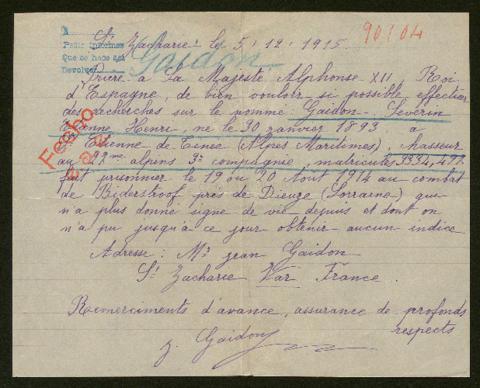 90104
St Zacharie le 5, 12, 1915.
Pedir informes
Que se hace así
Devolver
Gaidon
Prière à Sa Majesté Alphonse XII Roi
d'Espagne, de bien vouloir si possible, effectuer
des recherches sur le nommé Gaidon Séverin
Etienne Henri, né le 30 janvier 1893 à
St Etienne de Tinée (Alpes Maritimes), chasseur
au 22me alpins 3e compagnie, matricules
fait prisonnier le 19 ou 20 Août 1914 au combat
de Biderstroof près de Dieuze (Lorraine) qui
n'a plus donné signe de vie depuis et dont on
n'a pu jusqu'à ce jour obtenir aucun indice
Adresse: Mr Jean Gaidon
St Zacharie Var France.
Remerciments d'avance, assurance de profonds
respects
J. Gaidon
Fecho